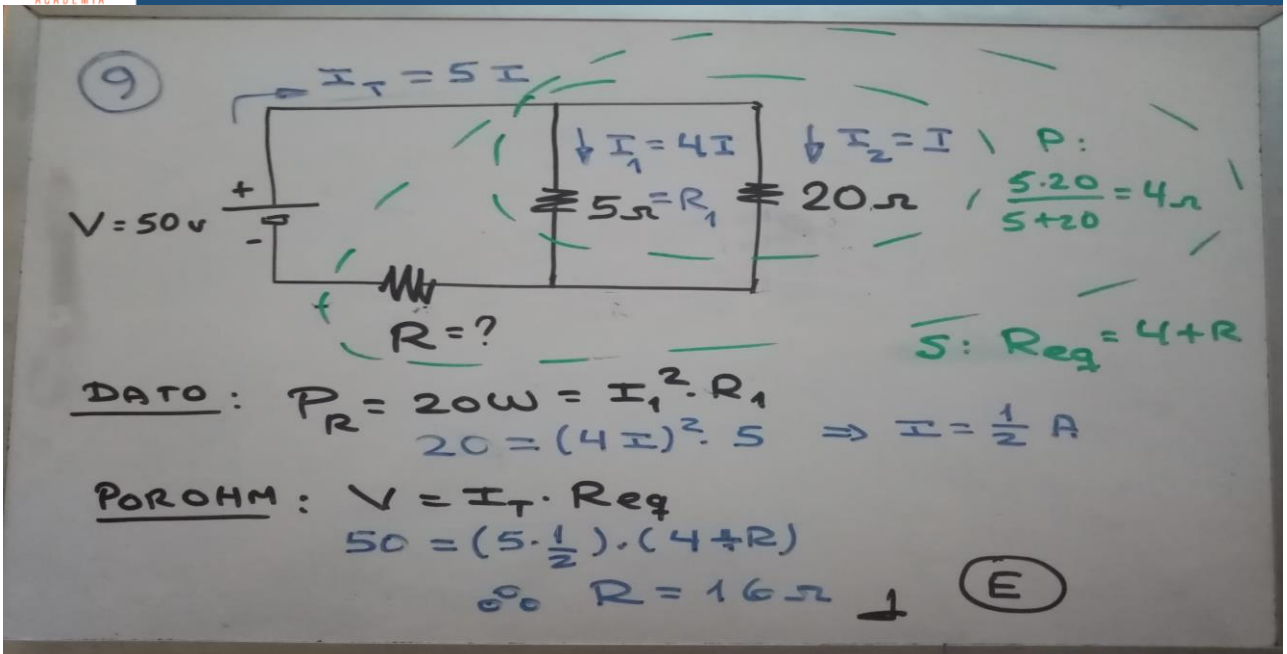 ACADEMIA
9
I_T = 5I
↓ I₁ = 4I
↓ I₂ = I
P:
V = 50v
+
-
5Ω = R₁
20Ω
5·20 / 5+20 = 4Ω
R = ?
S: Req = 4+R
DATO: P_R = 20W = I₁²·R₁
20 = (4I)²·5 ⇒ I = 1/2 A
POR OHM: V = I_T · Req
50 = (5·1/2)·(4+R)
∴ R = 16Ω
E